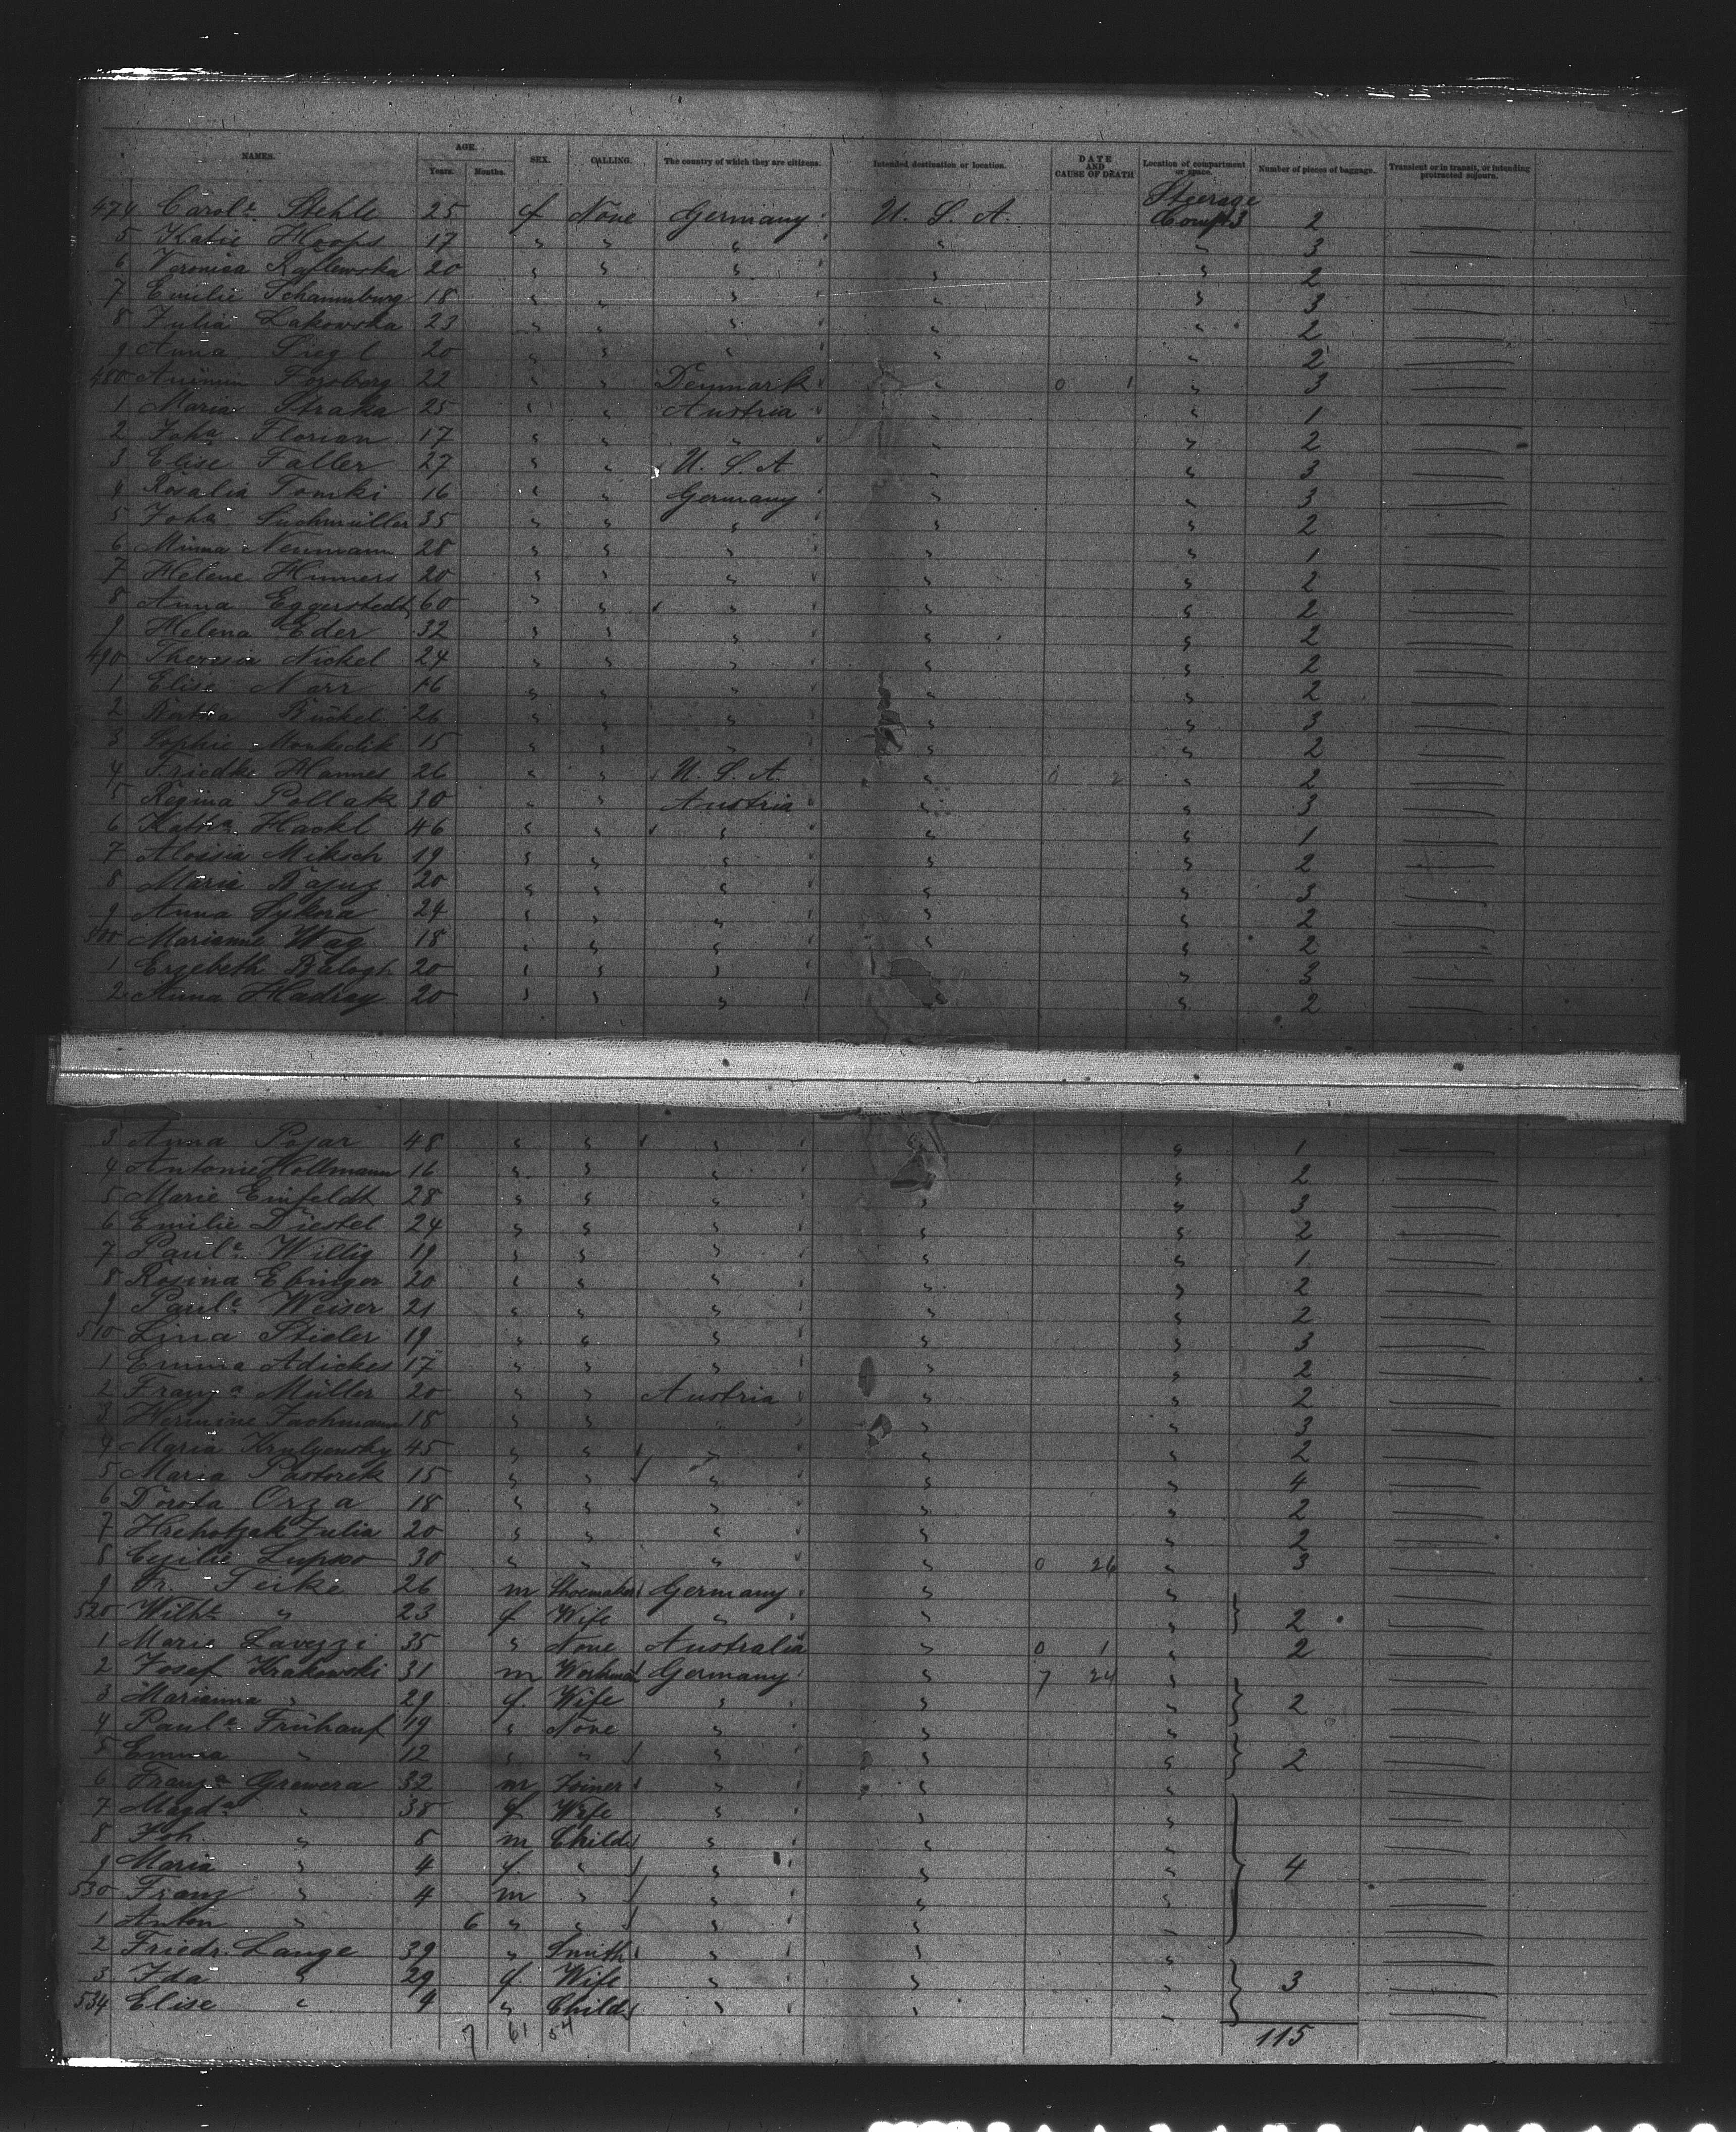 NAMES. AGE. Years. Months. SEX. CALLING. The country of which they are citizens. Intended destination or location. DATE AND CAUSE OF DEATH Location of compartment or space. Number of pieces of baggage. Transient or in transit, or intending protracted sojourn.
474 Carole Stehle 25 f None Germany U. S. A. Steerage Compt 3 2
5 Katie Hoops 17 " " " " " 3
6 Veronica 20 " " " " " 2
7 Emilie Schaumburg 18 " " " " " 3
8 Julia Lakowska 23 " " " " " 2
9 Anna Siegl 20 " " " " " 2
480 Forsberg 22 " " Denmark " 0 1 " 3
1 Maria Straka 25 " " Austria " " 1
2 Joha Florian 17 " " " " " 2
3 Elise Faller 27 " " U. S. A " " 3
4 Rosalia Tomki 16 " " Germany " " 3
5 Joha Suchmüller 35 " " " " " 2
6 Minna Neumann 28 " " " " " 1
7 Helene Hinners 20 " " " " " 2
8 Anna Eggerstedt 60 " " " " " 2
9 Helena Eder 32 " " " " " 2
490 Theresia Nickel 24 " " " " " 2
1 Elise Narr 16 " " " " " 2
2 Bückel 26 " " " " " 3
3 Sophie Monkedik 15 " " " " " 2
4 Friedke Hannes 26 " " U. S. A. " 0 2 " 2
5 Regina Pollak 30 " " Austria " " 3
6 Katha Hackl 46 " " " " " 1
7 Aloisia Miksch 19 " " " " " 2
8 Marie 20 " " " " " 3
9 Anna Sykora 24 " " " " " 2
500 Marianne Wag 18 " " " " " 2
1 Erzebeth Balogh 20 " " " " " 3
2 Anna Hadray 20 " " " " " 2
3 Anna Pojar 48 " " " " 1
4 Antonie Hollmann 16 " " " " 2
5 Marie Einfeldt 28 " " " " " 3
6 Emilie Diestel 24 " " " " " 2
7 Paule Willig 19 " " " " " 1
8 Rosina Ebinger 20 " " " " " 2
9 Paule Weiser 21 " " " " " 2
510 Lina Stieler 19 " " " " " 3
1 Emma Adickes 17 " " " " " 2
2 Franza Müller 20 " " Austria " " 2
3 Hermine Jachmann 18 " " " " " 3
4 Maria 45 " " " " " 2
5 Maria Pastorek 15 " " " " " 4
6 Dorota Orza 18 " " " " " 2
7 Hrehotzak Julia 20 " " " " " 2
8 30 " " " " 0 26 " 3
9 Fr. Teike 26 m Shoemaker Germany " "
520 Wilhe " 23 f Wife " " " 2
1 Marie Lavezzi 35 " None Australia " 0 1 " 2
2 Josef Krakowski 31 m Workman Germany " 7 24 "
3 Marianna " 29 f. Wife " " " 2
4 Paule Frühauf 19 " None " " "
5 Emma " 12 " " " " " 2
6 Franza Grewera 32 m Joiner " " "
7 Magda " 38 f Wife " " "
8 Joh. " 8 m Child " " "
9 Maria " 4 f. " " " " 4
530 Franz " 4 m " " " "
1 Anton " 6 " " " " "
2 Friedr. Lange 39 " Smith " " "
3 Ida " 29 f. Wife " " " 3
534 Elise " 4 " Child " " "
7 61 54 115